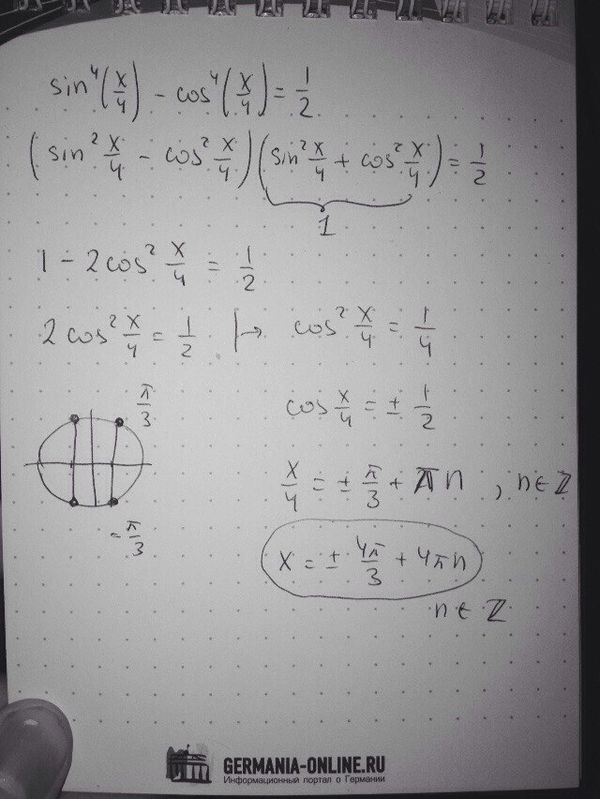 sin⁴(x/4) - cos⁴(x/4) = 1/2
(sin² x/4 - cos² x/4)(sin² x/4 + cos² x/4) = 1/2
1
1 - 2cos² x/4 = 1/2
2cos² x/4 = 1/2 |→ cos² x/4 = 1/4
cos x/4 = ± 1/2
π/3
x/4 = ± π/3 + πn, n∈ℤ
= π/3
x = ± 4π/3 + 4πn
n∈ℤ
GERMANIA-ONLINE.RU
Информационный портал о Германии